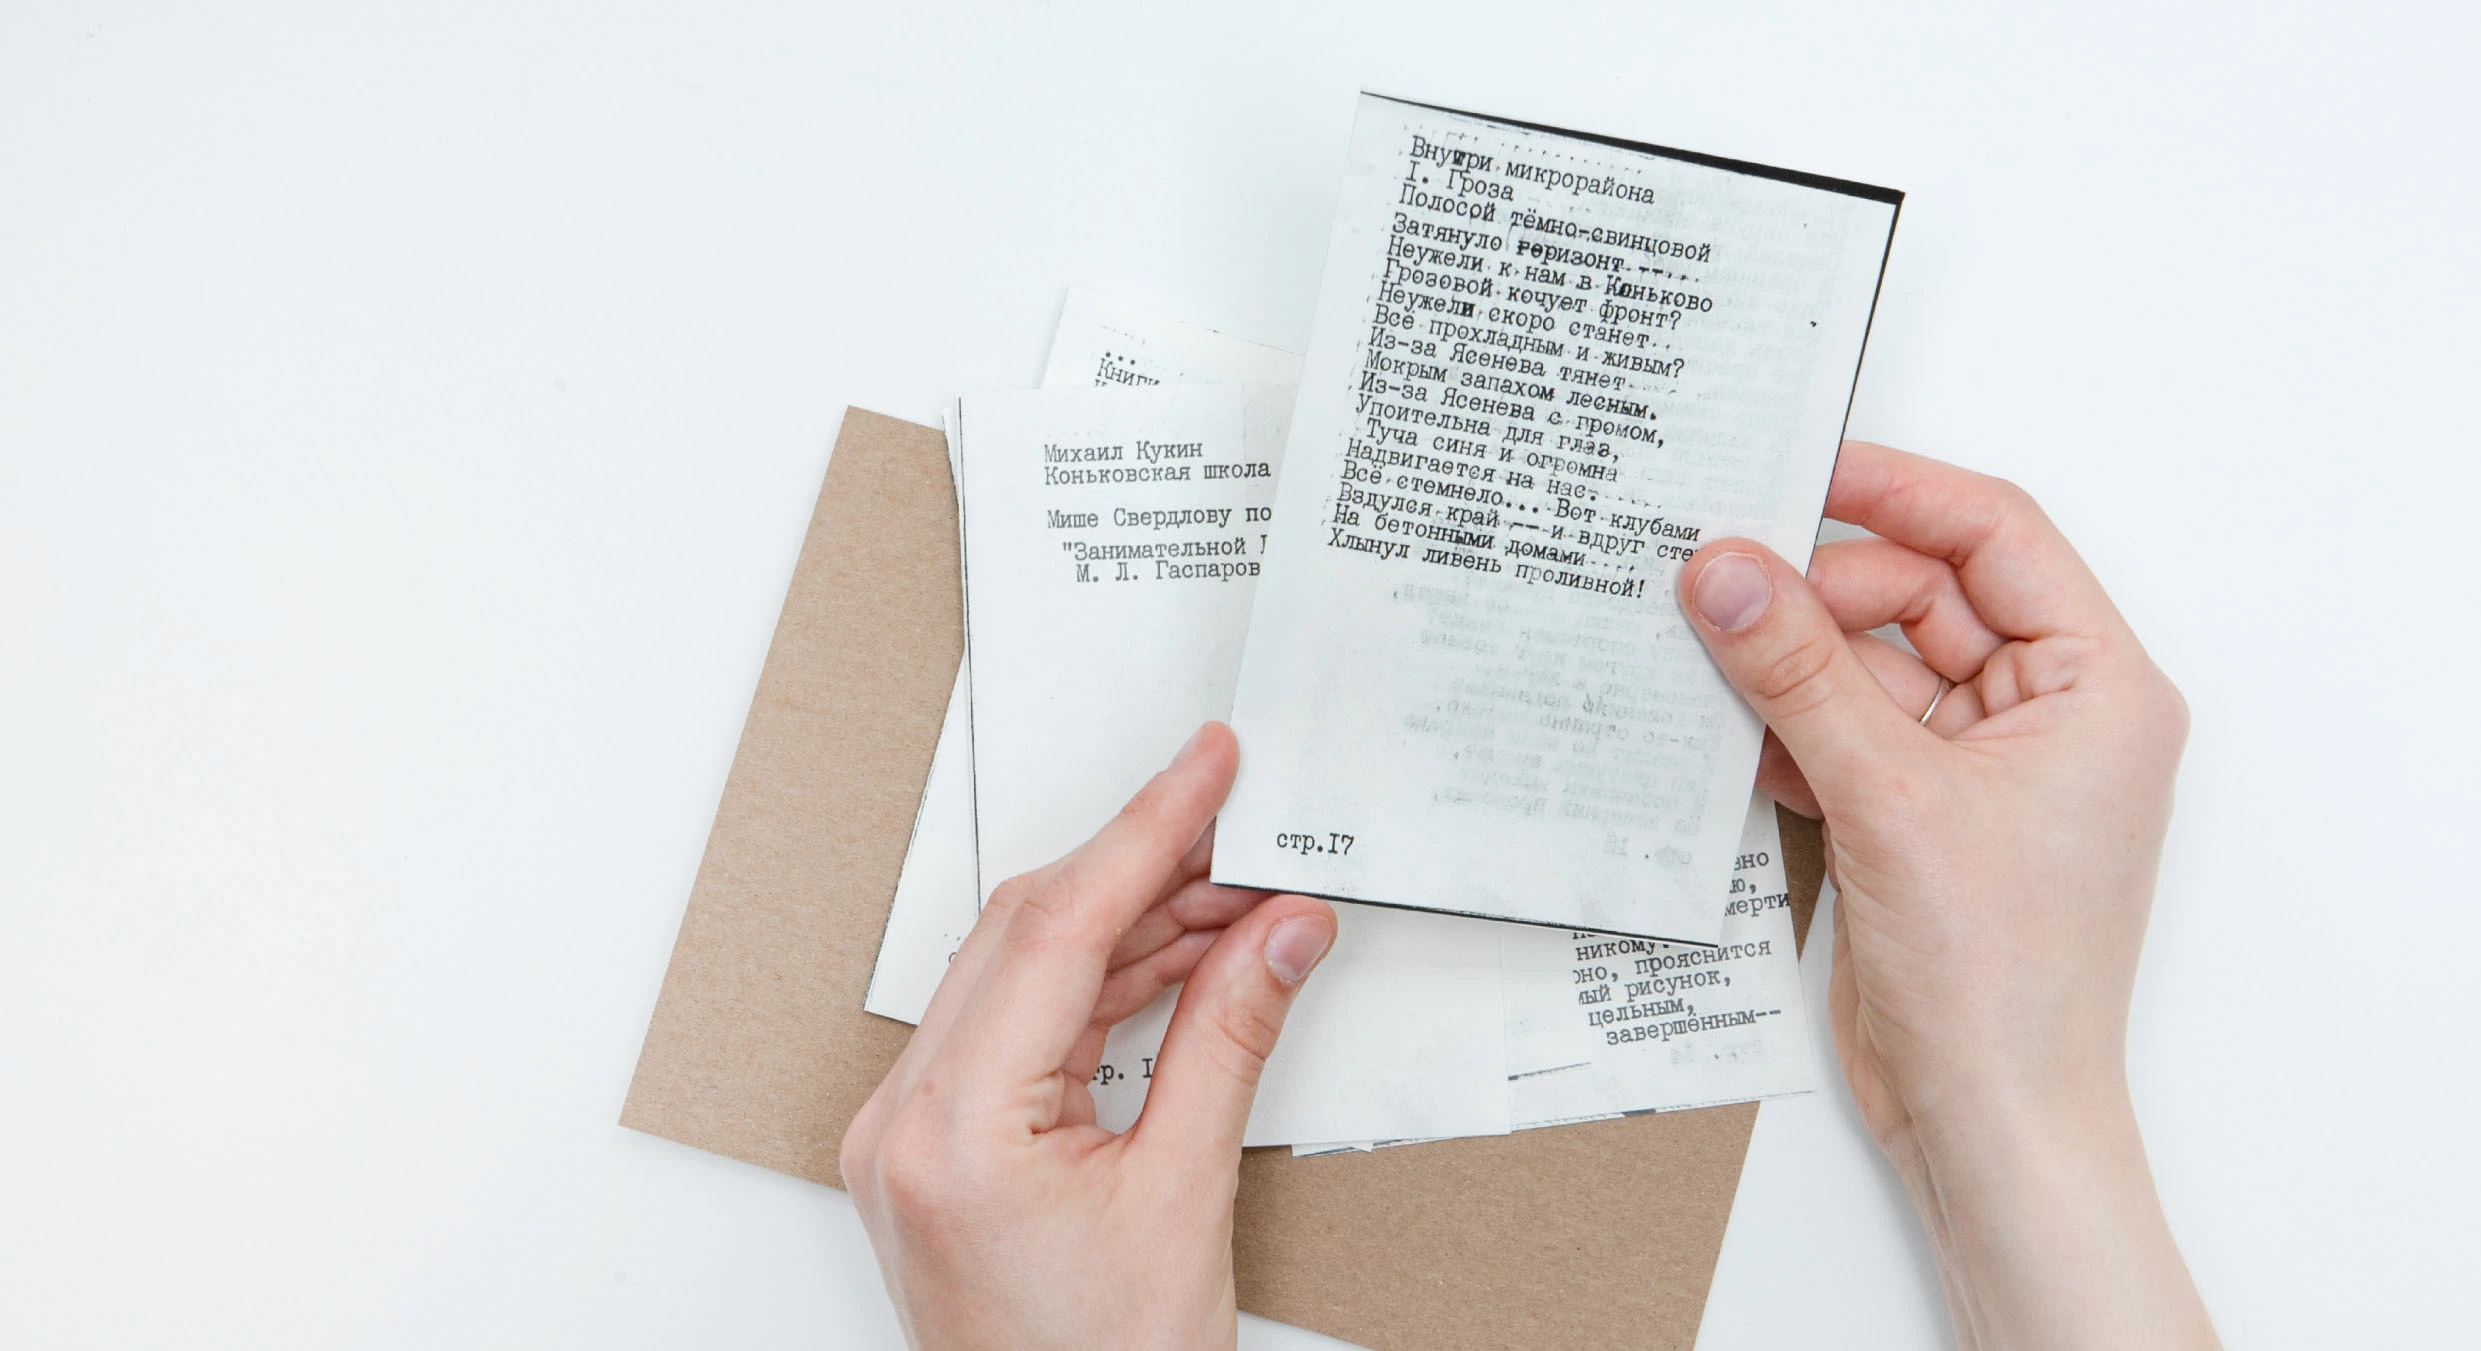 Внутри микрорайона
I. Гроза
Полосой тёмно-свинцовой
Затянуло горизонт --
Неужели к нам в Коньково
Грозовой кочует фронт?
Неужели скоро станет
Всё прохладным и живым?
Из-за Ясенева тянет
Мокрым запахом лесным.
Из-за Ясенева с громом,
Упоительна для глаз,
Туча синя и огромна
Надвигается на нас.
Всё стемнело... Вот клубами
Вздулся край -- и вдруг
На бетонными домами
Хлынул ливень проливной!
стр.I7
...
Книги
Михаил Кукин
Коньковская школа
Мише Свердлову по
"Занимательной
М. Л. Гаспаров
вно
ю,
мерти
никому.
оно, прояснится
мый рисунок,
цельным,
завершённым--